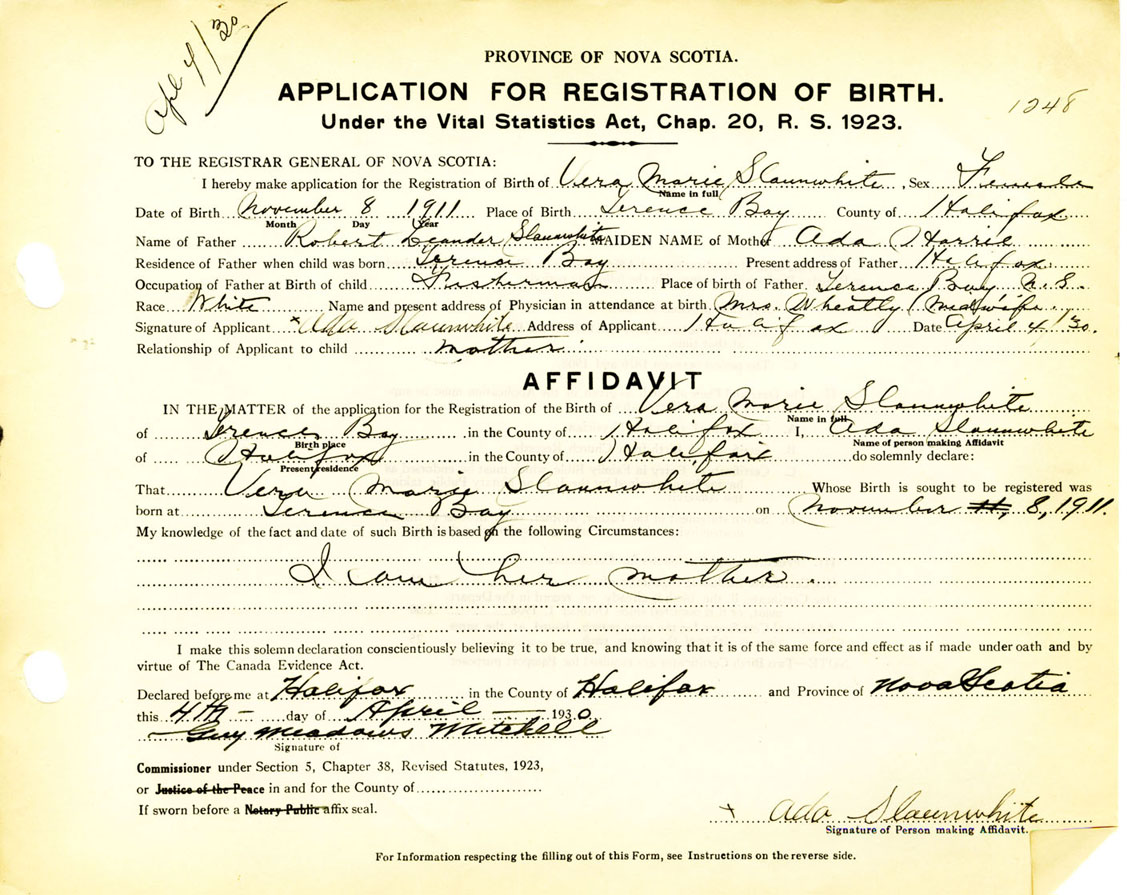 Apl 4/30
PROVINCE OF NOVA SCOTIA.
APPLICATION FOR REGISTRATION OF BIRTH.
1248
Under the Vital Statistics Act, Chap. 20, R. S. 1923.
TO THE REGISTRAR GENERAL OF NOVA SCOTIA:
I hereby make application for the Registration of Birth of Vera Marie Slaunwhite, Sex Female
Name in full
Date of Birth November 8 1911 Place of Birth Terence Bay County of Halifax
Month Day Year
Name of Father Robert Leander Slaunwhite MAIDEN NAME of Mother Ada Harrie
Residence of Father when child was born Terence Bay Present address of Father Halifax
Occupation of Father at Birth of child Fisherman Place of birth of Father. Terence Bay N.S.
Race White Name and present address of Physician in attendance at birth Mrs. Wheatly (Midwife
Signature of Applicant x Ada Slaunwhite Address of Applicant Halifax Date April 4/30.
Relationship of Applicant to child mother
AFFIDAVIT
IN THE MATTER of the application for the Registration of the Birth of Vera Marie Slaunwhite
Name in full
of Terence Bay in the County of Halifax I, Ada Slaunwhite
Birth place Name of person making Affidavit
of Halifax in the County of Halifax do solemnly declare:
Present residence
That Vera Marie Slaunwhite Whose Birth is sought to be registered was
born at Terence Bay on November 8, 1911.
My knowledge of the fact and date of such Birth is based on the following Circumstances:
I am her mother.
I make this solemn declaration conscientiously believing it to be true, and knowing that it is of the same force and effect as if made under oath and by
virtue of The Canada Evidence Act.
Declared before me at Halifax in the County of Halifax and Province of Nova Scotia
this 4th day of April 1930
Guy Meadows Mitchell
Signature of
Commissioner under Section 5, Chapter 38, Revised Statutes, 1923,
or Justice of the Peace in and for the County of
If sworn before a Notary Public affix seal.
x Ada Slaunwhite
Signature of Person making Affidavit.
For Information respecting the filling out of this Form, see Instructions on the reverse side.